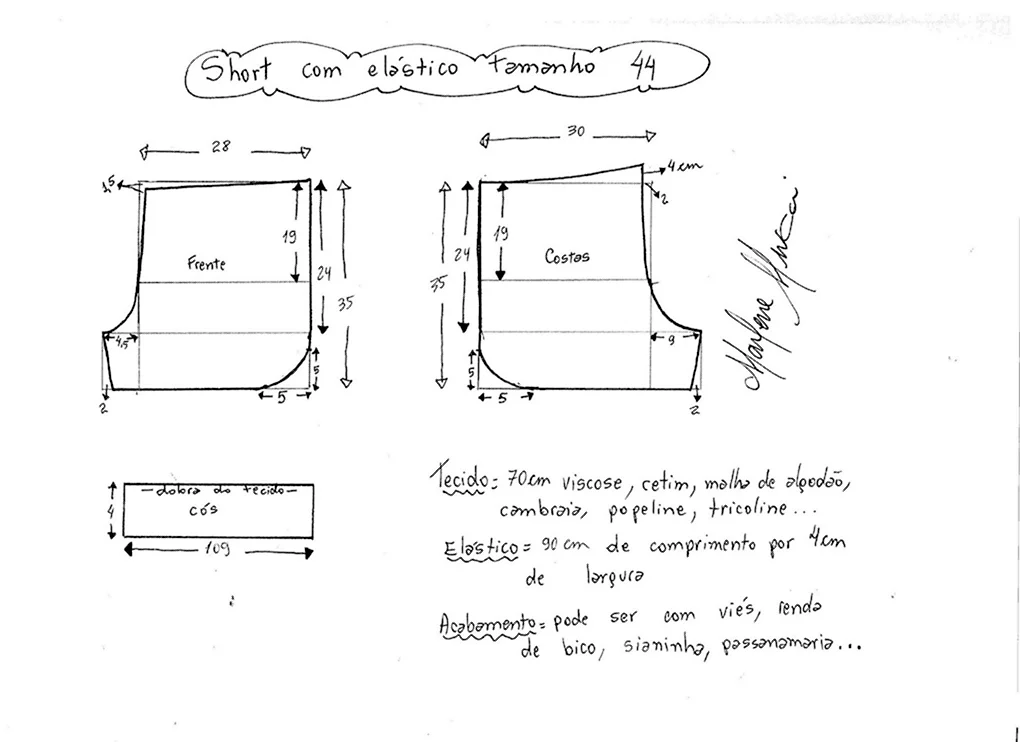 Short com elástico tamanho 44
28
1,5
19
24
35
Frente
4,5
5
5
2
30
4 cm
2
19
24
35
Costas
9
5
5
2
- dobra do tecido -
cós
4
109
Tecido = 70cm viscose, cetim, malha de algodão,
cambraia, popeline, tricoline...
Elástico = 90 cm de comprimento por 4 cm
de largura
Acabamento = pode ser com viés, renda
de bico, sianinha, passanamaria...